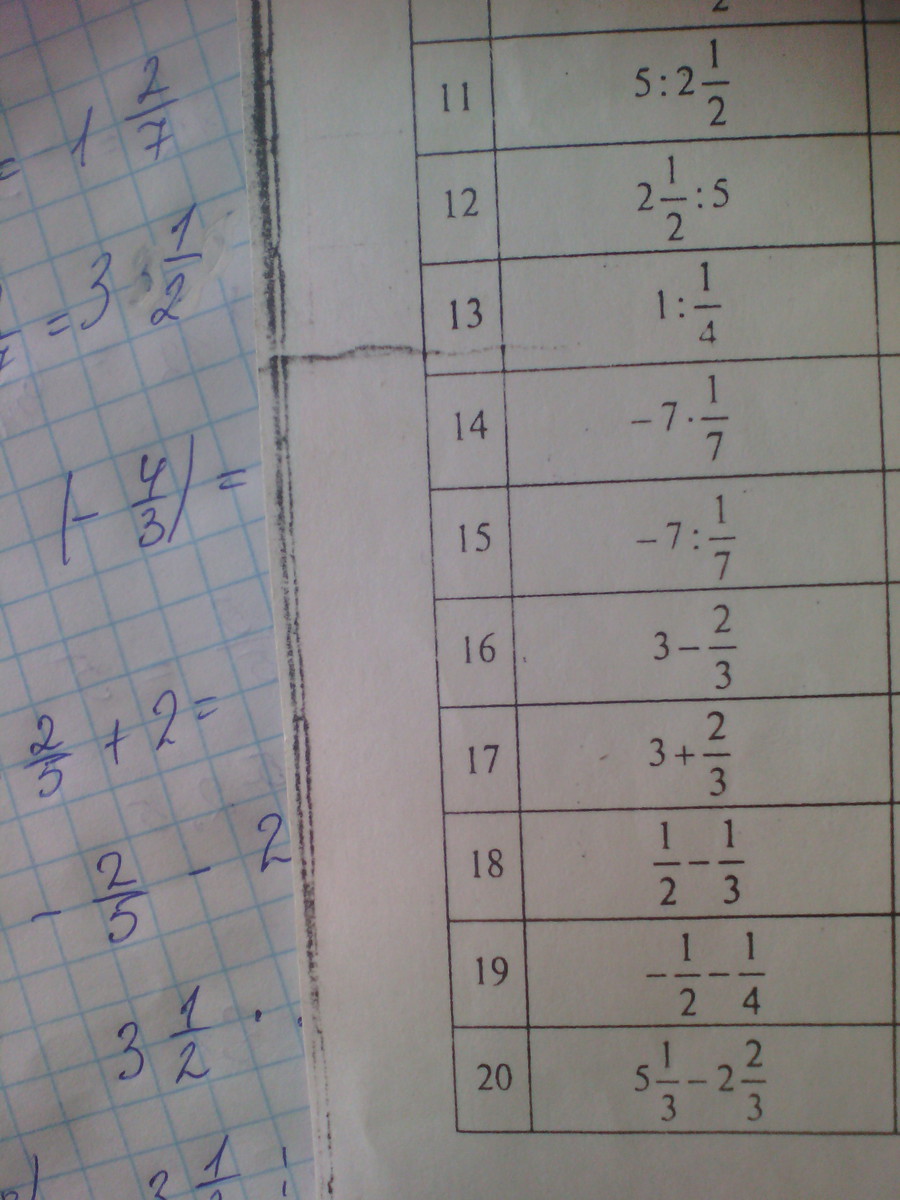 = 1 2/7
= 3 1/2
(- 4/3) =
2/5 + 2 =
- 2/5 - 2
3 1/2 ·
3 1
2
11 5:2 1/2
12 2 1/2 :5
13 1: 1/4
14 -7· 1/7
15 -7: 1/7
16 3- 2/3
17 3+ 2/3
18 1/2 - 1/3
19 - 1/2 - 1/4
20 5 1/3 -2 2/3